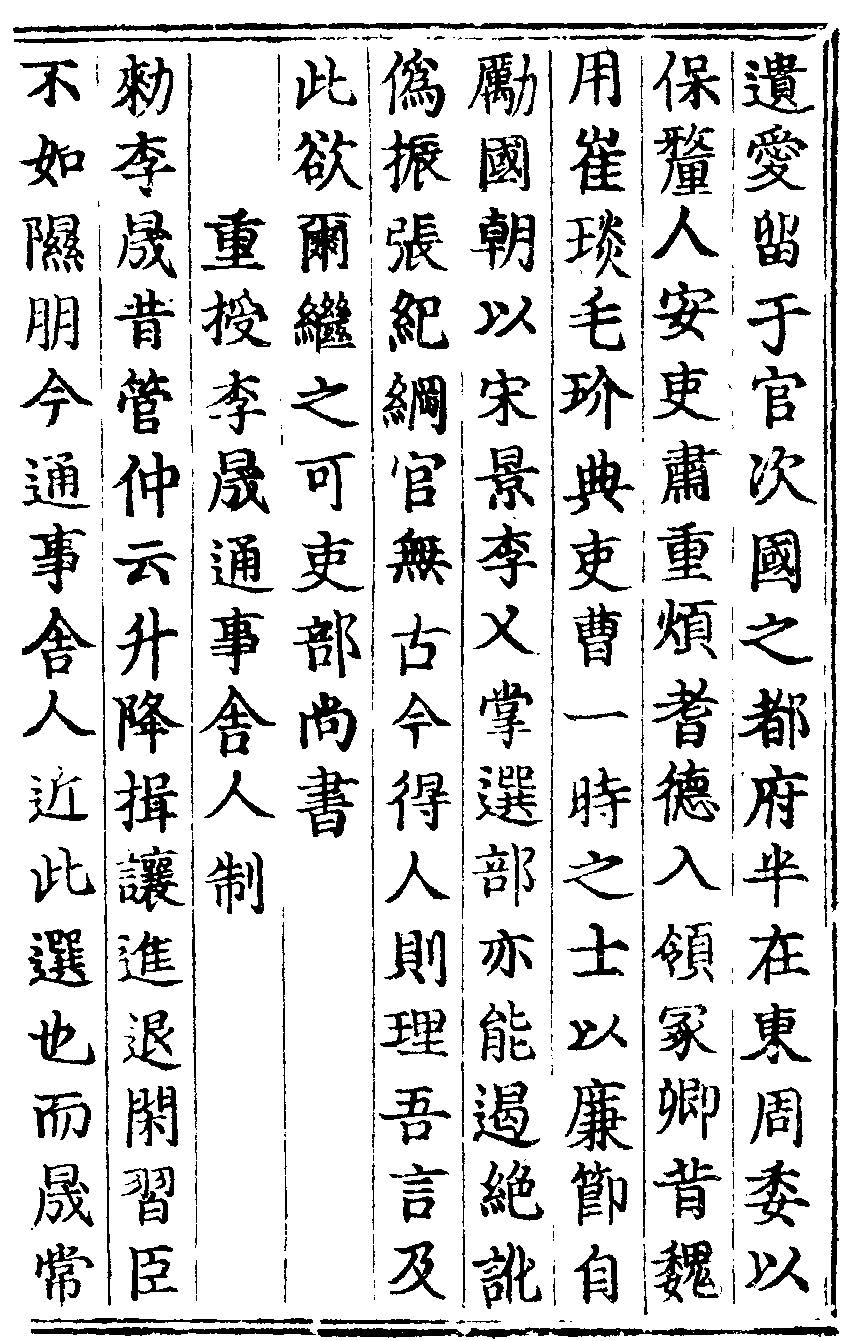 遺愛畱于官次國之都府半在東周委以
保釐人安吏肅重煩耆德入領冢卿昔魏
用崔琰毛玠典吏曹一時之士以廉節自
勵國朝以宋景李乂掌選部亦能遏絶訛
僞振張紀綱官無古今得人則理吾言及
此欲爾繼之可吏部尚書
重授李晟通事舍人制
勑李晟昔管仲云升降揖讓進退閑習臣
不如隰朋今通事舍人近此選也而晟常